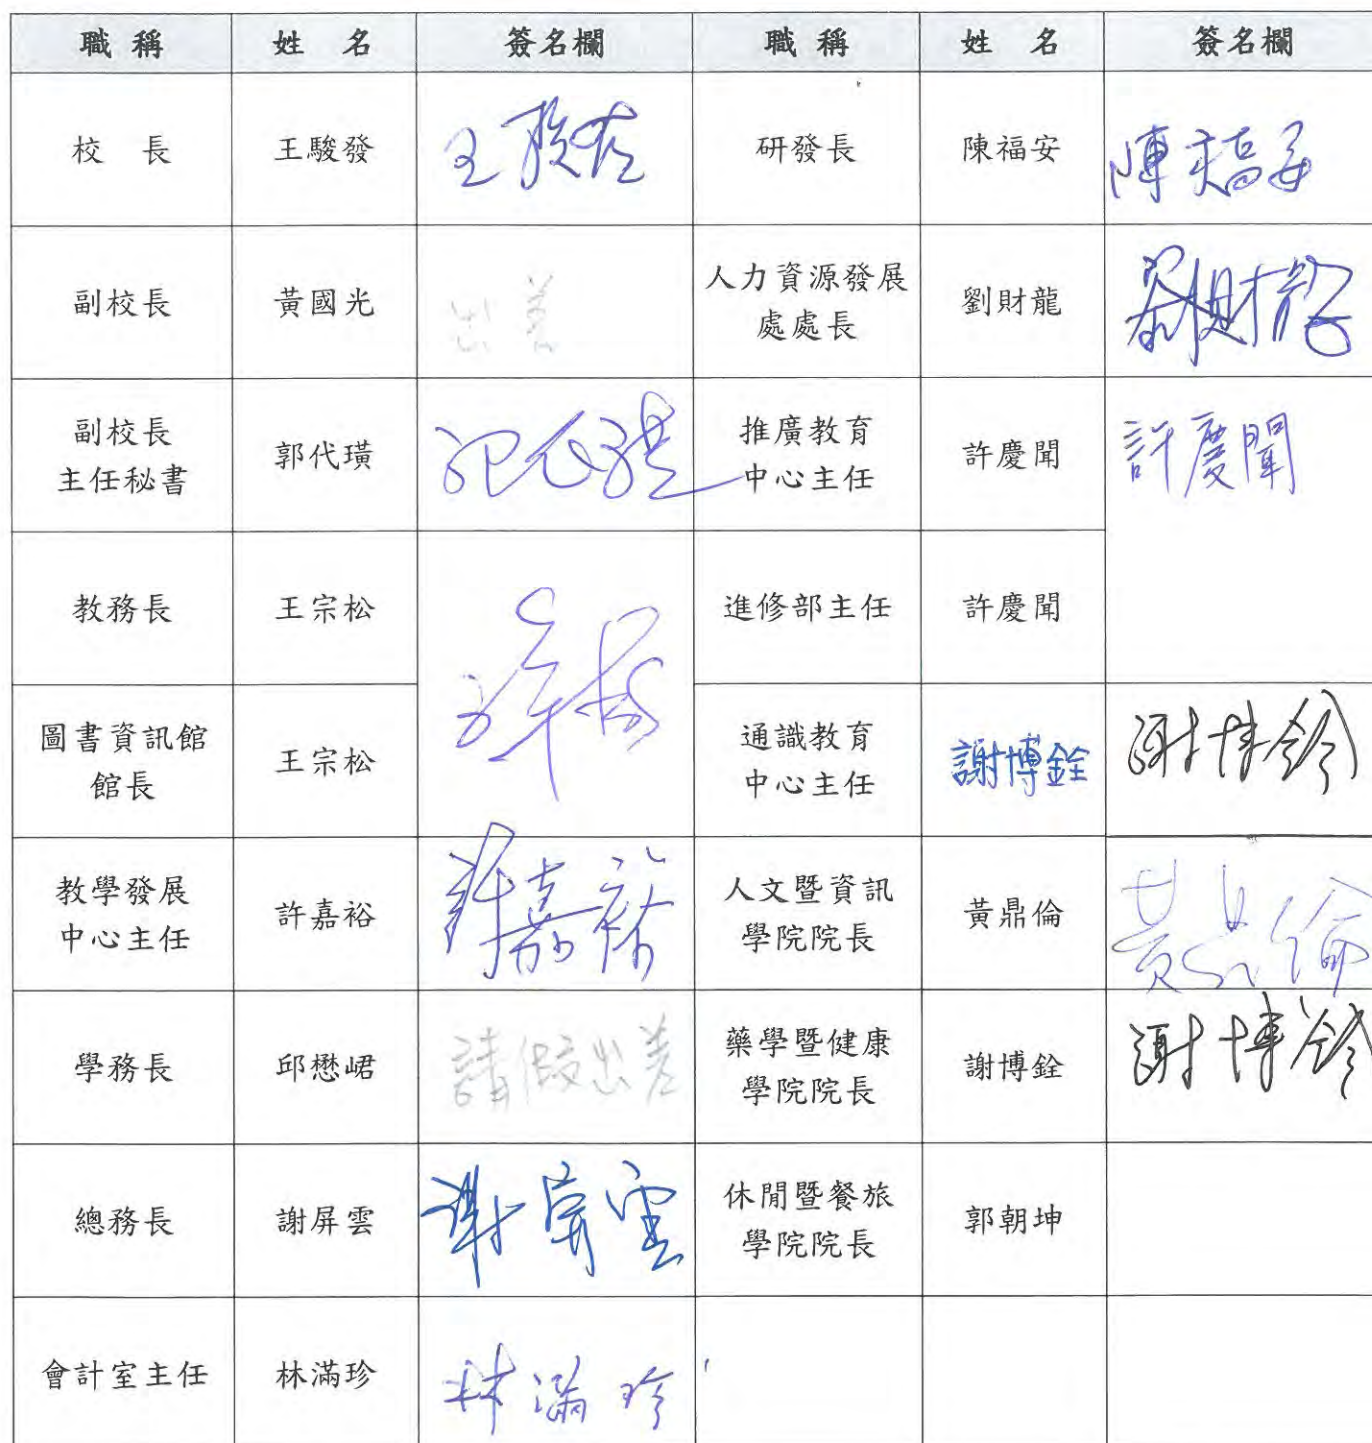 職稱 姓名 簽名欄 職稱 姓名 簽名欄
校長 王駿發 王駿發 研發長 陳福安 陳福安
副校長 黃國光 出差 人力資源發展
處處長 劉財龍 劉財龍
副校長
主任秘書 郭代璜 推廣教育
中心主任 許慶聞 許慶聞
教務長 王宗松 進修部主任 許慶聞
圖書資訊館
館長 王宗松 通識教育
中心主任 謝博銓 謝博銓
教學發展
中心主任 許嘉裕 許嘉裕 人文暨資訊
學院院長 黃鼎倫 黃鼎倫
學務長 邱懋峮 請假出差 藥學暨健康
學院院長 謝博銓 謝博銓
總務長 謝屏雲 謝屏雲 休閒暨餐旅
學院院長 郭朝坤
會計室主任 林滿珍 林滿珍